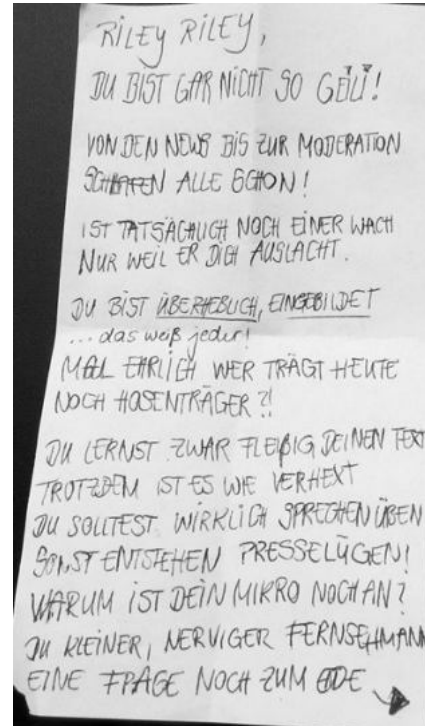 RILEY RILEY,
DU BIST GAR NICHT SO GEIL!
VON DEN NEWS BIS ZUR MODERATION
SCHLAFEN ALLE SCHON!
IST TATSÄCHLICH NOCH EINER WACH
NUR WEIL ER DICH AUSLACHT.
DU BIST ÜBERHEBLICH, EINGEBILDET
... das weiß jeder!
MAL EHRLICH WER TRÄGT HEUTE
NOCH HOSENTRÄGER?!
DU LERNST ZWAR FLEIßIG DEINEN TEXT
TROTZDEM IST ES WIE VERHEXT
DU SOLLTEST WIRKLICH SPRECHEN ÜBEN
SONST ENTSTEHEN PRESSELÜGEN!
WARUM IST DEIN MIKRO NOCH AN?
DU KLEINER, NERVIGER FERNSEHMANN
EINE FRAGE NOCH ZUM ENDE